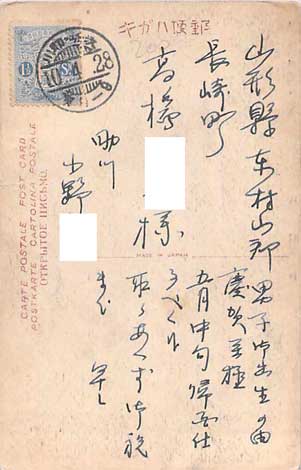 郵便ハガキ
山形縣東村山郡
長崎町
高橋 様
助川
小野
男子御出生の由
慶賀至極
五月中旬帰省仕
るべく候
取りあへず御祝
まで
早々
CARTE POSTALE POST CARD
POSTKARTE CARTOLINA POSTALE
ОТКРЫТОЕ ПИСЬМО
MADE IN JAPAN
10.4.28